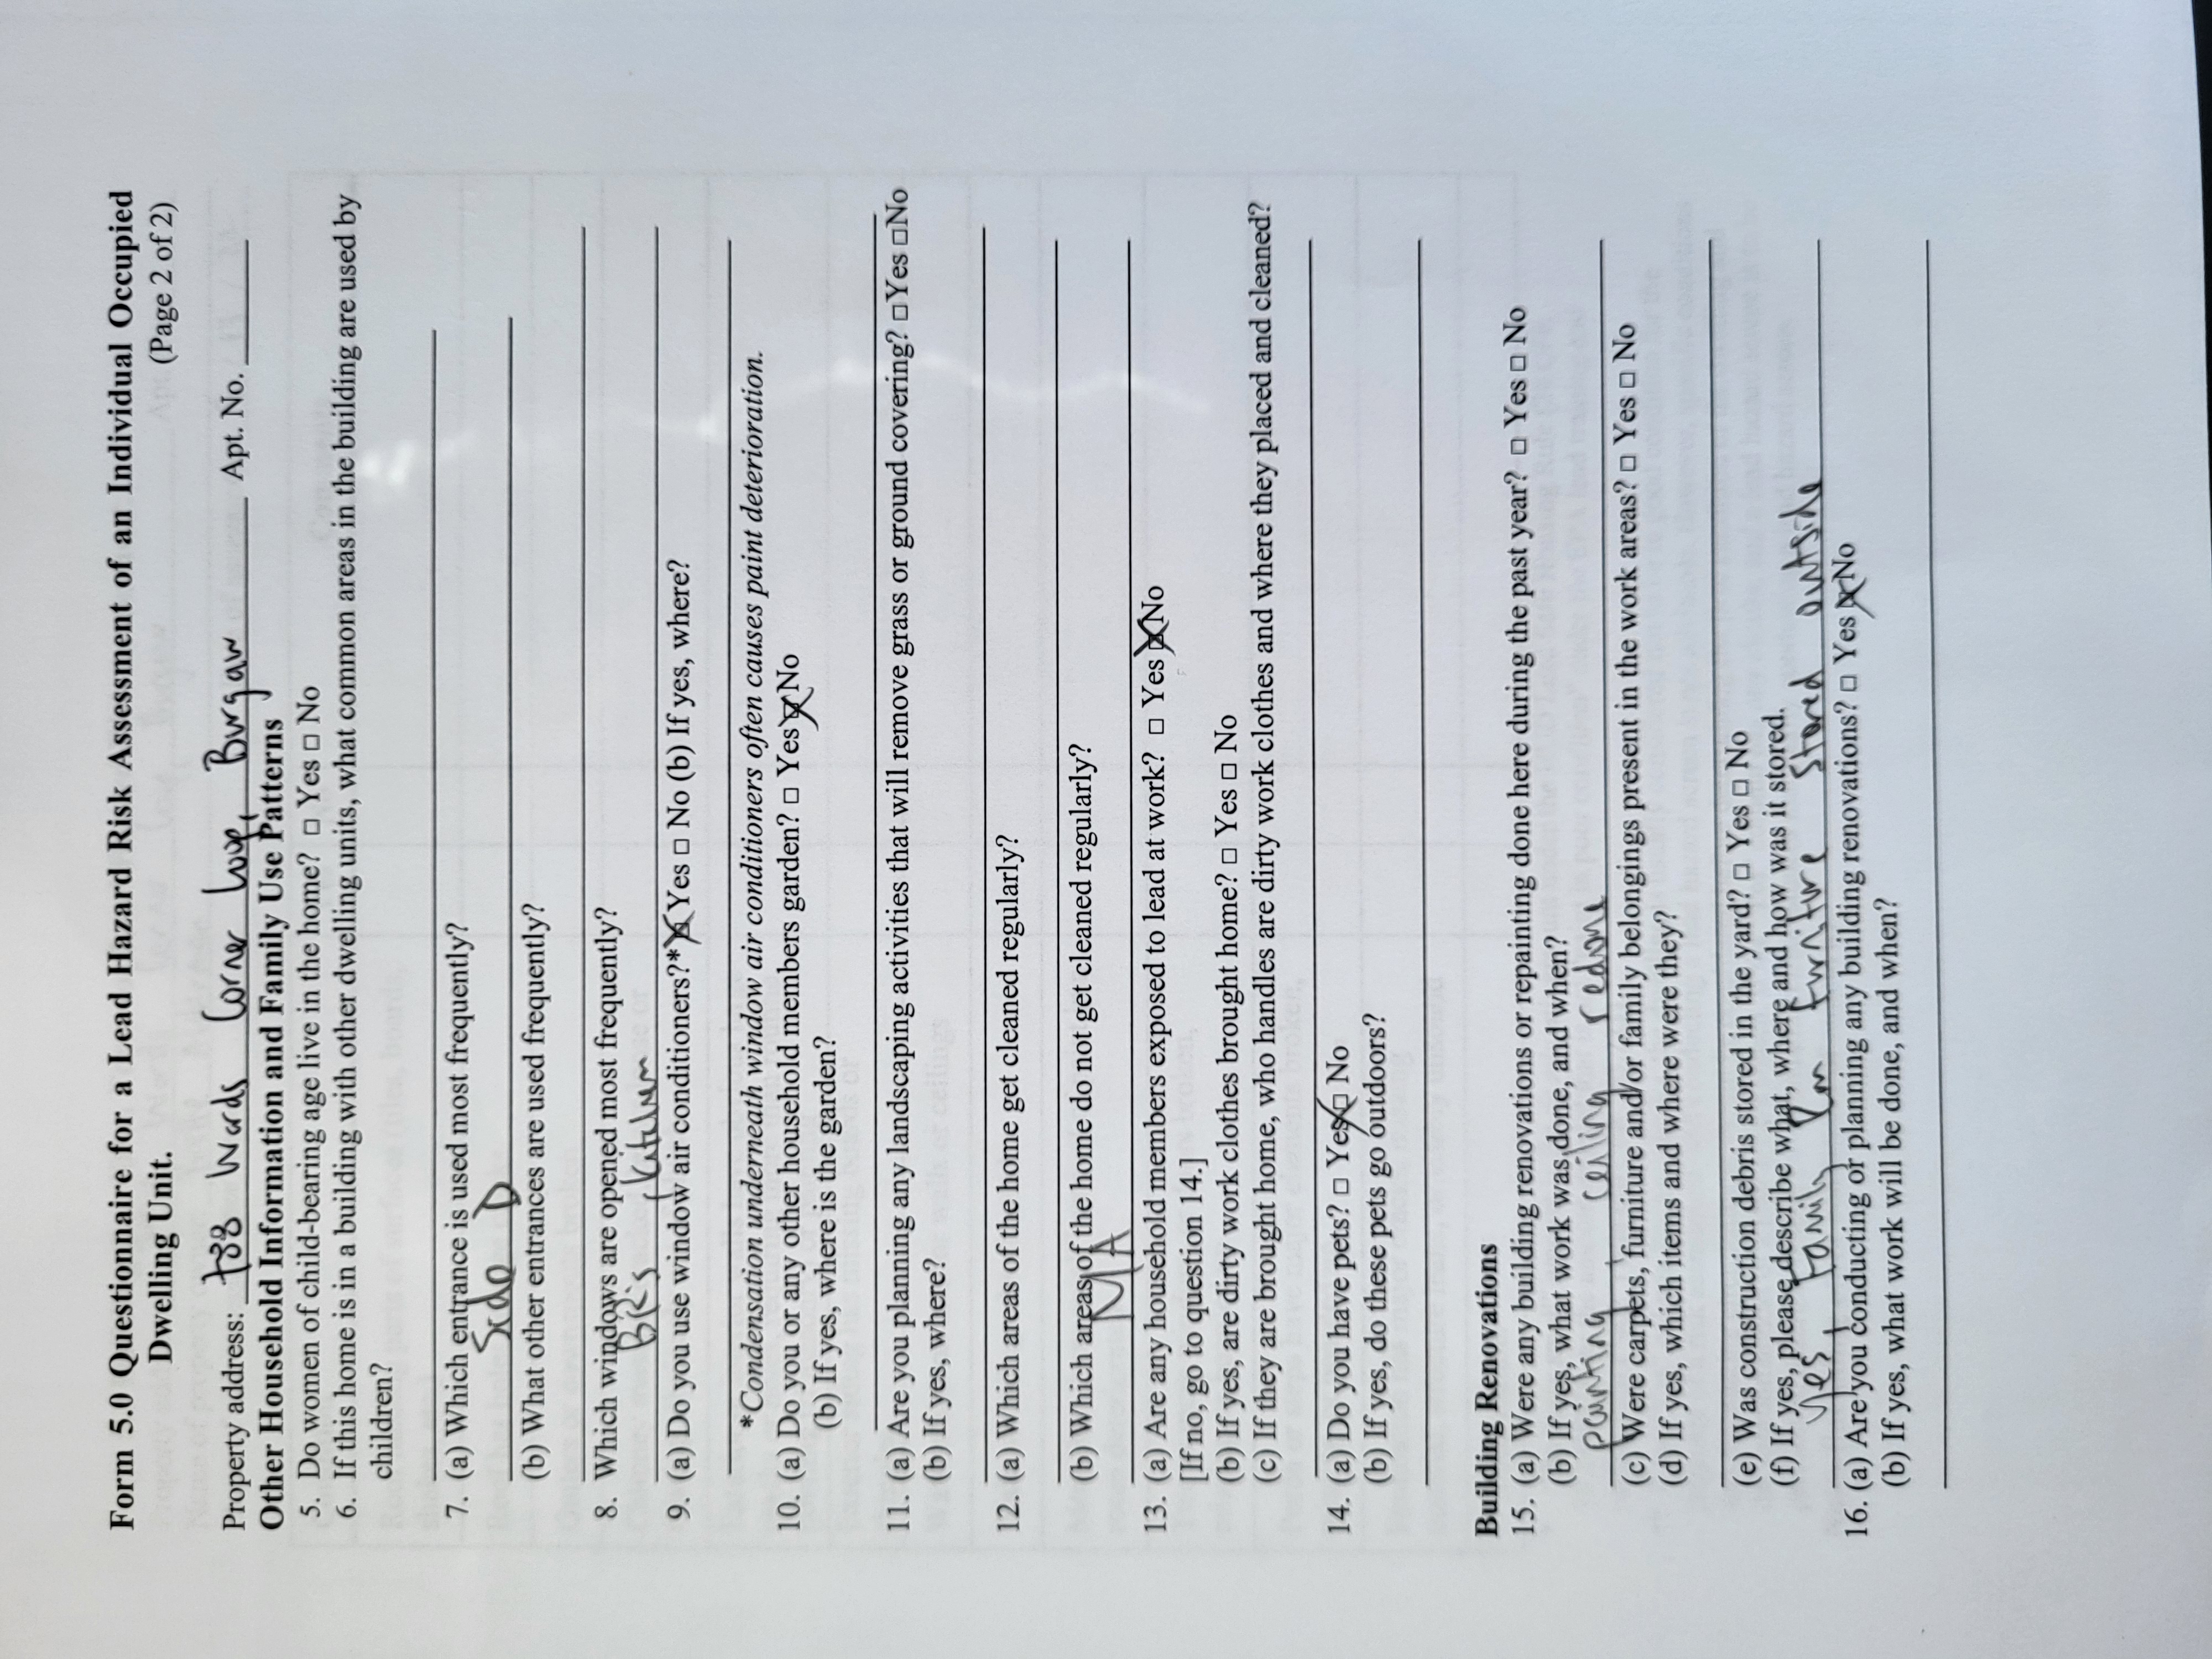 Form 5.0 Questionnaire for a Lead Hazard Risk Assessment of an Individual Occupied
Dwelling Unit. (Page 2 of 2)
Property address: 738 Wards Corner Loop, Burgaw Apt. No.
Other Household Information and Family Use Patterns
5. Do women of child-bearing age live in the home? □ Yes □ No
6. If this home is in a building with other dwelling units, what common areas in the building are used by
children?
7. (a) Which entrance is used most frequently?
Side D
(b) What other entrances are used frequently?
8. Which windows are opened most frequently?
BR's, Kitchen
9. (a) Do you use window air conditioners?* ☒ Yes □ No (b) If yes, where?
*Condensation underneath window air conditioners often causes paint deterioration.
10. (a) Do you or any other household members garden? □ Yes ☒ No
(b) If yes, where is the garden?
11. (a) Are you planning any landscaping activities that will remove grass or ground covering? □Yes □No
(b) If yes, where?
12. (a) Which areas of the home get cleaned regularly?
(b) Which areas of the home do not get cleaned regularly?
N/A
13. (a) Are any household members exposed to lead at work? □ Yes ☒ No
[If no, go to question 14.]
(b) If yes, are dirty work clothes brought home? □ Yes □ No
(c) If they are brought home, who handles are dirty work clothes and where they placed and cleaned?
14. (a) Do you have pets? □ Yes ☒ No
(b) If yes, do these pets go outdoors?
Building Renovations
15. (a) Were any building renovations or repainting done here during the past year? □ Yes □ No
(b) If yes, what work was done, and when?
painting, ceiling redone
(c) Were carpets, furniture and/or family belongings present in the work areas? □ Yes □ No
(d) If yes, which items and where were they?
(e) Was construction debris stored in the yard? □ Yes □ No
(f) If yes, please describe what, where and how was it stored.
yes, Family Rm furniture stored outside
16. (a) Are you conducting or planning any building renovations? □ Yes ☒ No
(b) If yes, what work will be done, and when?